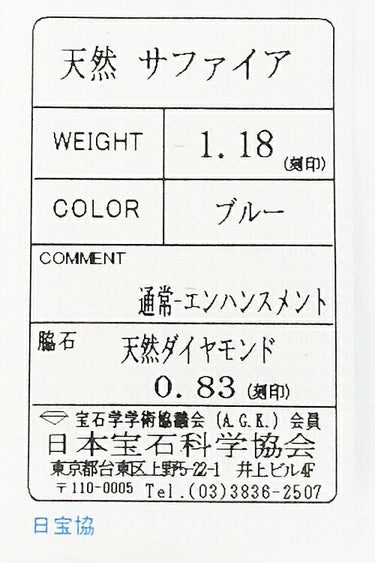 天然 サファイア
WEIGHT 1.18 (刻印)
COLOR ブルー
COMMENT
通常-エンハンスメント
脇石 天然ダイヤモンド
0.83 (刻印)
宝石学学術協議会 (A.G.K.) 会員
日本宝石科学協会
東京都台東区上野5-22-1 井上ビル4F
〒110-0005 Tel.(03)3836-2507
日宝協